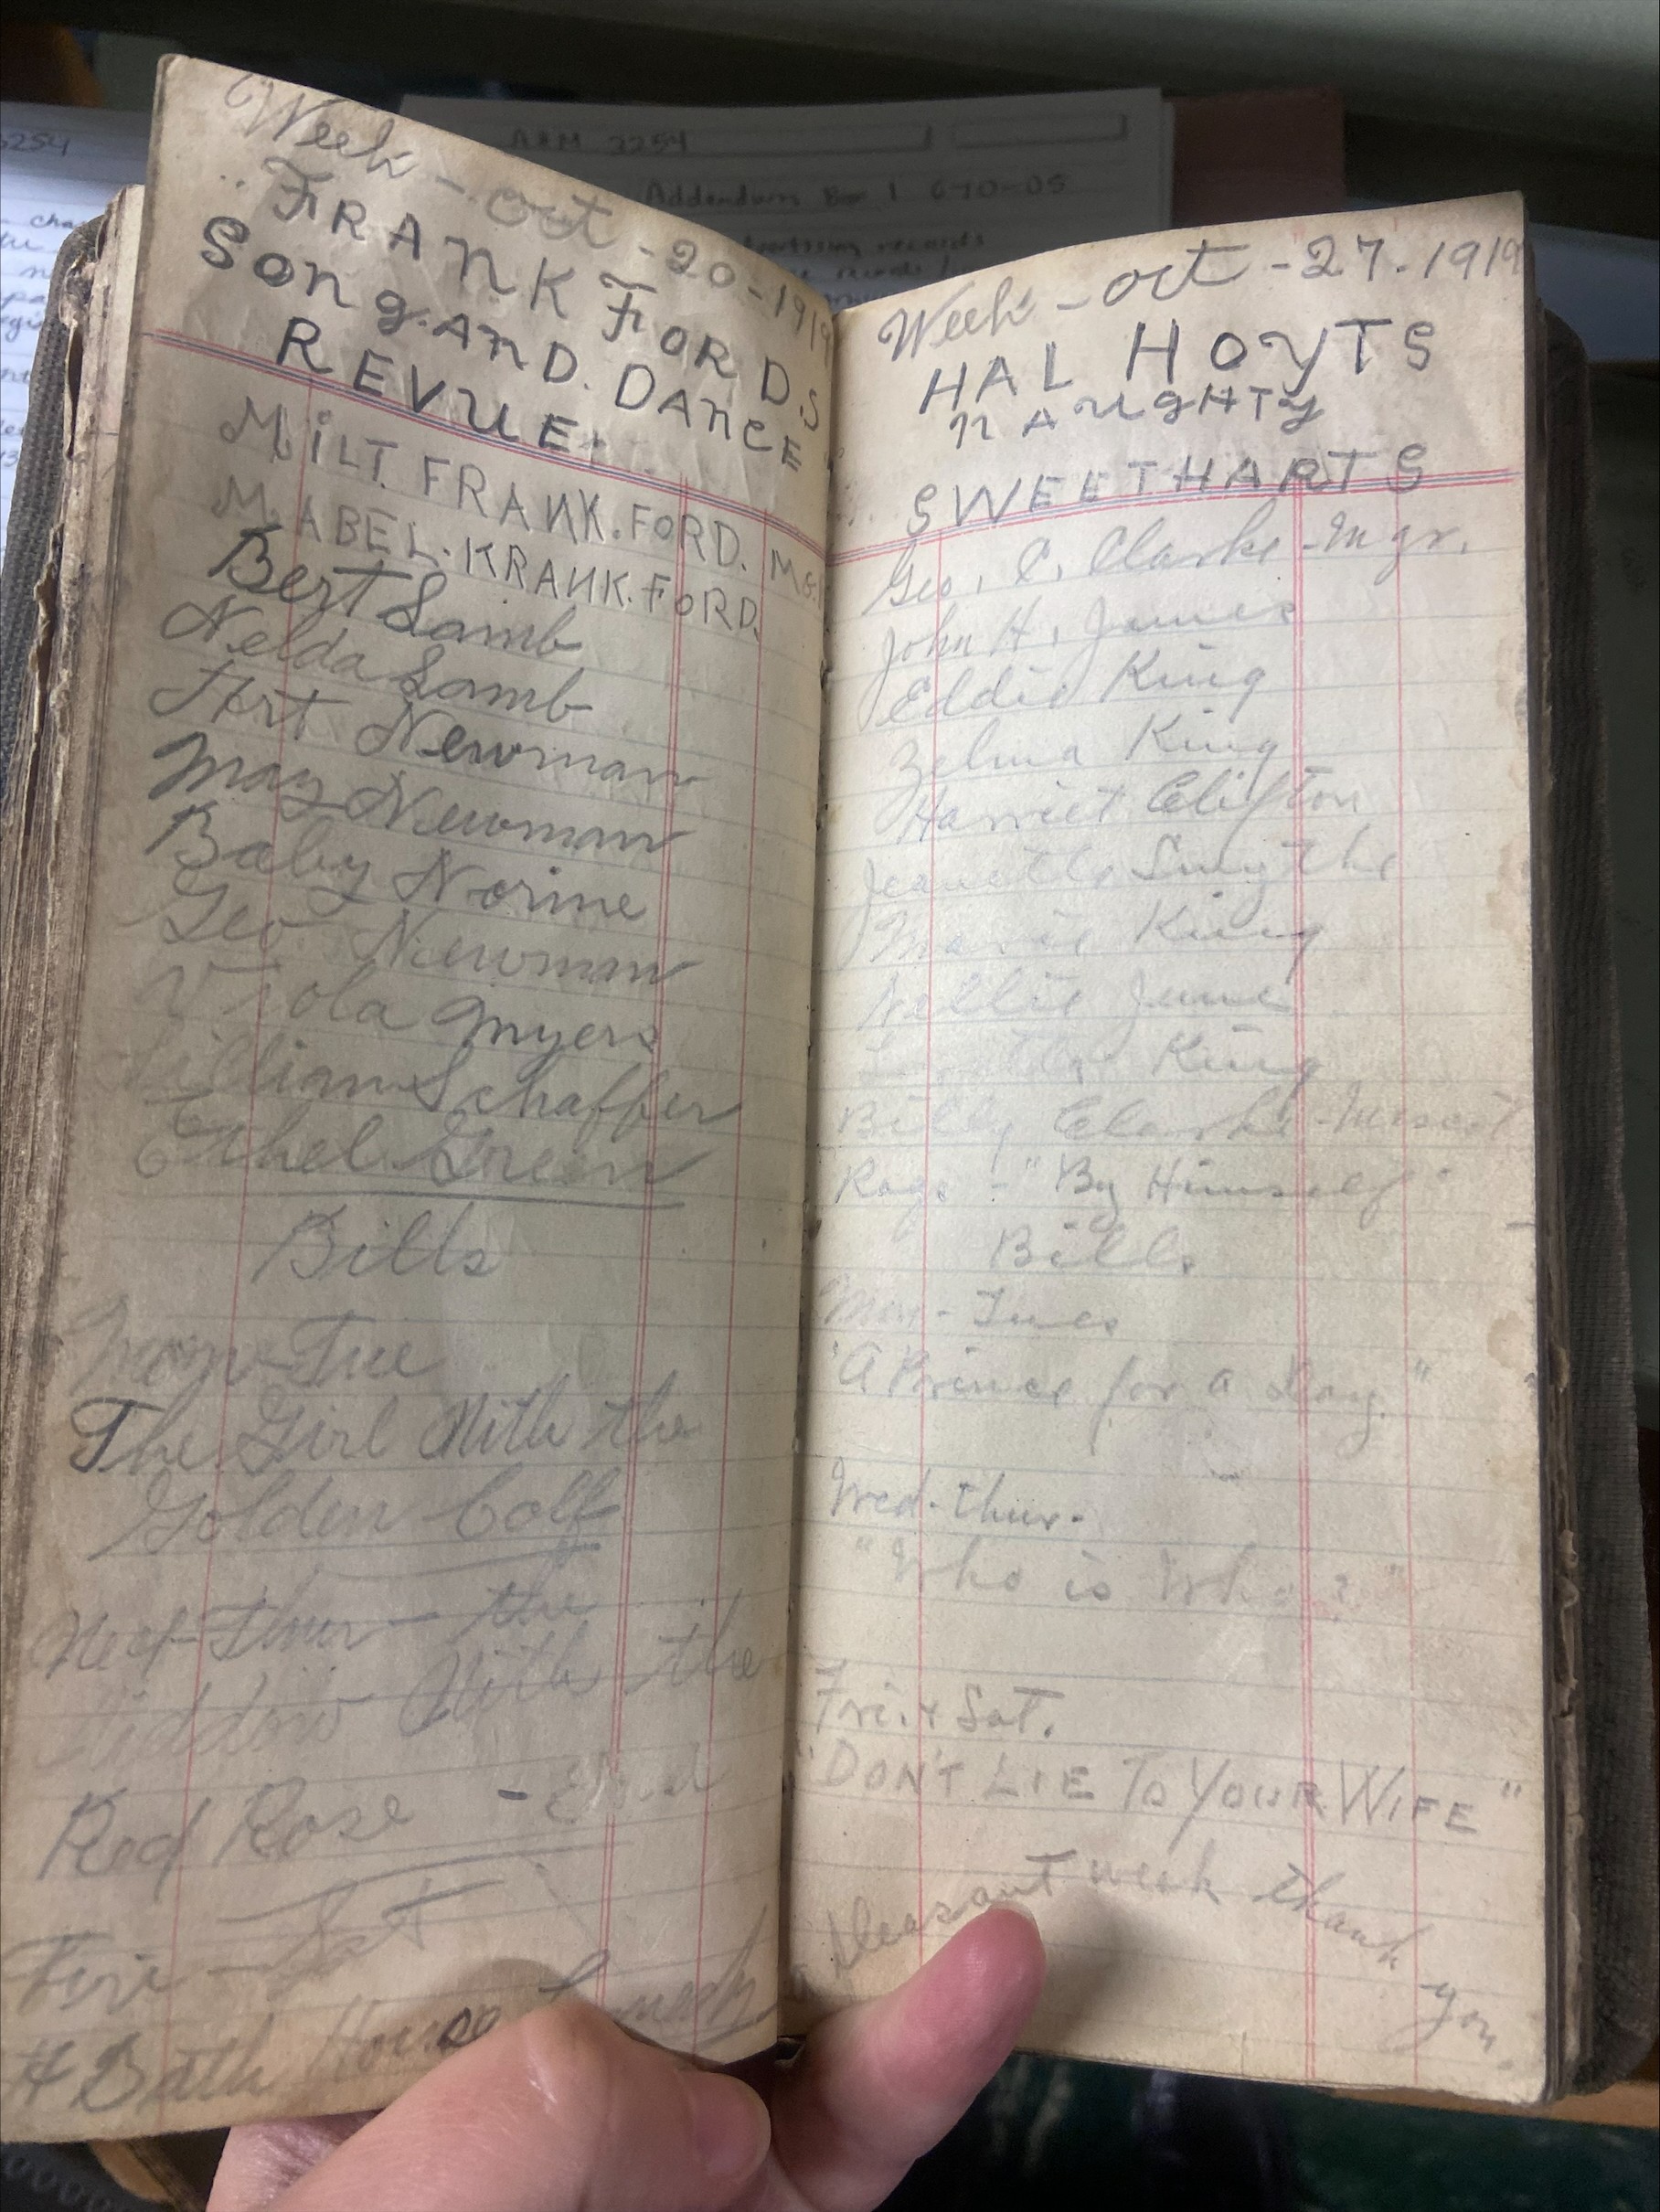 A&M 3254
Addendum Box 1 6-10-05
Week - Oct - 20 - 1919
FRANK FORDS
Song. AND. DANCE
REVUE.
MILT. FRANK. FORD. MG.
MABEL. KRANK. FORD.
Bert Lamb
Nelda Lamb
Art Newman
May Newman
Baby Norine
Geo Newman
Viola Myers
Lillian Schaffer
Ethel Green
Bills
Mon-Tue
The Girl With the
Golden Calf
Wed-Thur- the
Widdow With the
Red Rose
Fri-Sat
Bath House
Week - Oct - 27. 1919
HAL HOYTS
NAUGHTY
SWEETHARTS
Geo. C. Clarke - Mgr.
John H. James
Eddie King
Zelma King
Harriet Clifton
Jeanette Smythe
Marie King
Nellie June
King
Billy Clarke - Mascot
Rags - "By Himself"
Bills
Mon - Tues
"A Prince for a Day."
Wed - thur.
"Who is Who?"
Fri. + Sat.
"DON'T LIE TO YOUR WIFE"
a pleasant week thank you.